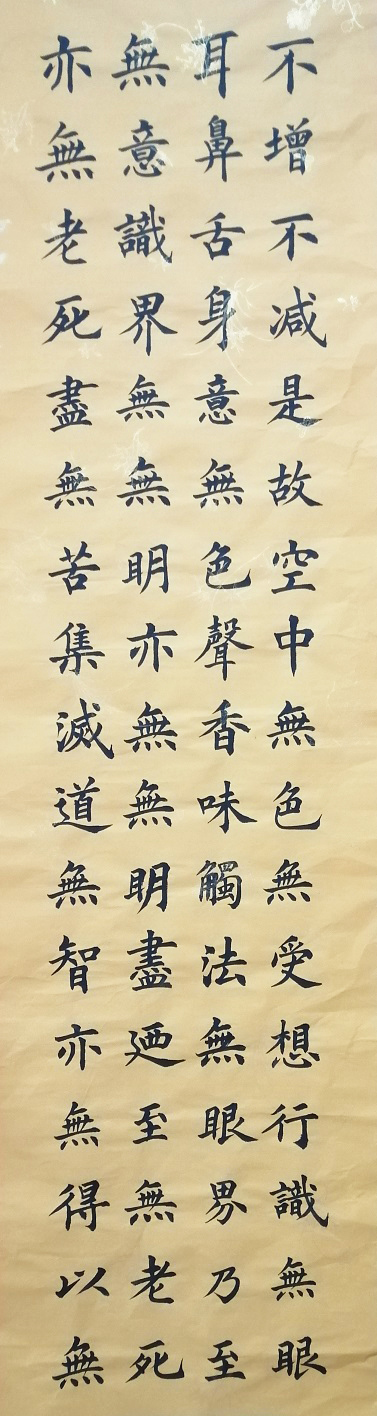 不增不减是故空中無色無受想行識無眼
耳鼻舌身意無色聲香味觸法無眼界乃至
無意識界無無明亦無無明盡廼至無老死
亦無老死盡無苦集滅道無智亦無得以無